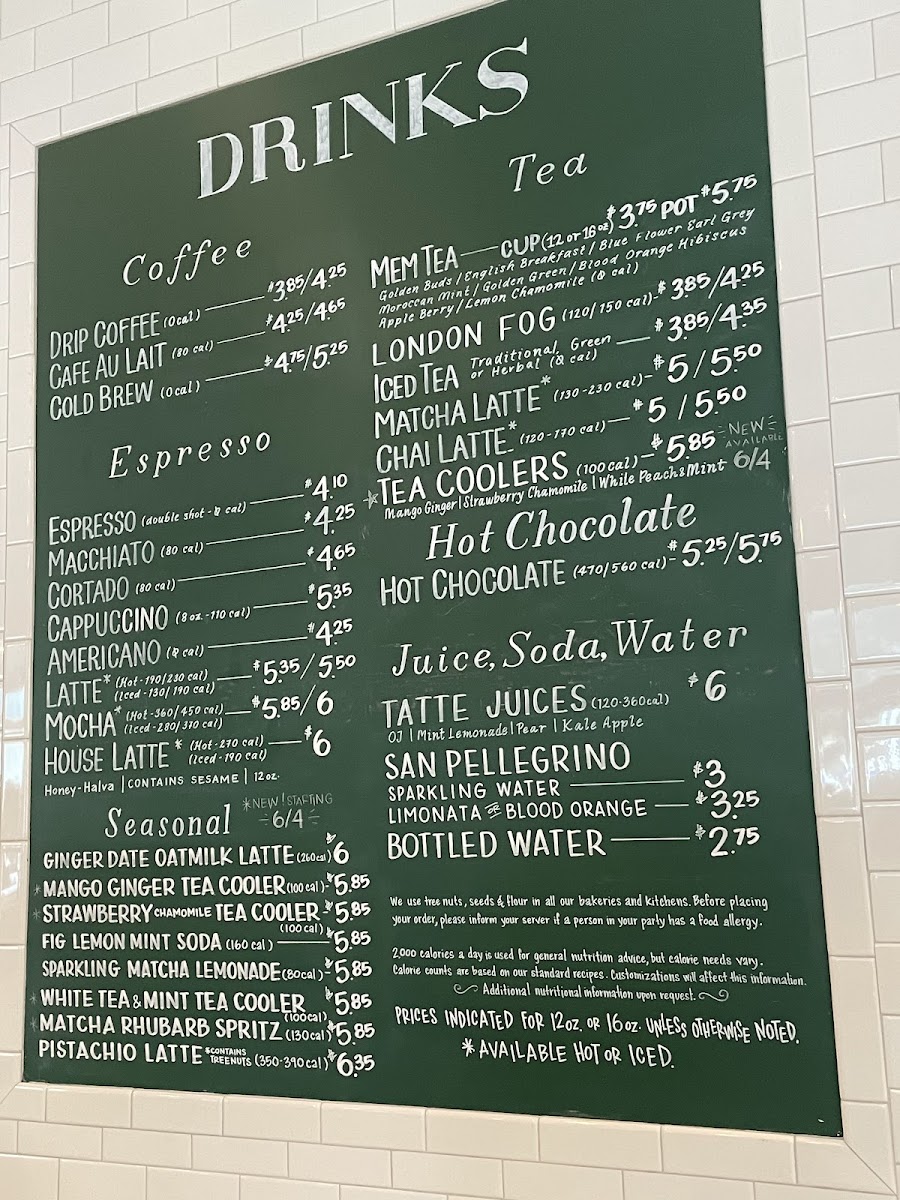 DRINKS
Coffee
DRIP COFFEE (0 cal) $3.85/4.25
CAFE AU LAIT (80 cal) $4.25/4.65
COLD BREW (0 cal) $4.75/5.25
Espresso
ESPRESSO (double shot - 0 cal) $4.10
MACCHIATO (80 cal) $4.25
CORTADO (80 cal) $4.65
CAPPUCCINO (8 oz. - 110 cal) $5.35
AMERICANO (0 cal) $4.25
LATTE* (Hot - 190/230 cal) $5.35/5.50
(Iced - 130/190 cal)
MOCHA* (Hot - 360/450 cal) $5.85/6
(Iced - 280/370 cal)
HOUSE LATTE* (Hot - 270 cal) $6
(Iced - 190 cal)
Honey-Halva | CONTAINS SESAME | 12oz.
Seasonal *NEW! STARTING
6/4
GINGER DATE OATMILK LATTE (260 cal) $6
*MANGO GINGER TEA COOLER (100 cal) - $5.85
*STRAWBERRY CHAMOMILE TEA COOLER - $5.85
(100 cal)
FIG LEMON MINT SODA (160 cal) $5.85
SPARKLING MATCHA LEMONADE (80 cal) - $5.85
*WHITE TEA & MINT TEA COOLER $5.85
(100 cal)
*MATCHA RHUBARB SPRITZ (130 cal) $5.85
PISTACHIO LATTE *CONTAINS TREE NUTS (350-390 cal) $6.35
Tea
MEM TEA CUP (12 or 16 oz) $3.75 POT $5.75
Golden Buds / English Breakfast / Blue Flower Earl Grey
Moroccan Mint / Golden Green / Blood Orange Hibiscus
Apple Berry / Lemon Chamomile (0 cal)
LONDON FOG (120/150 cal) - $3.85/4.25
ICED TEA Traditional, Green $3.85/4.35
or Herbal (0 cal)
MATCHA LATTE* (130-230 cal) - $5/5.50
CHAI LATTE* (120-170 cal) $5/5.50
*TEA COOLERS (100 cal) - $5.85 NEW AVAILABLE 6/4
Mango Ginger | Strawberry Chamomile | While Peach & Mint
Hot Chocolate
HOT CHOCOLATE (470/560 cal) - $5.25/5.75
Juice, Soda, Water
TATTE JUICES (120-360cal) $6
OJ | Mint Lemonade | Pear | Kale Apple
SAN PELLEGRINO
SPARKLING WATER $3
LIMONATA OR BLOOD ORANGE $3.25
BOTTLED WATER $2.75
We use tree nuts, seeds & flour in all our bakeries and kitchens. Before placing
your order, please inform your server if a person in your party has a food allergy.
2,000 calories a day is used for general nutrition advice, but calorie needs vary.
Calorie counts are based on our standard recipes. Customizations will affect this information.
Additional nutritional information upon request.
PRICES INDICATED FOR 12oz. OR 16oz. UNLESS OTHERWISE NOTED.
* AVAILABLE HOT OR ICED.